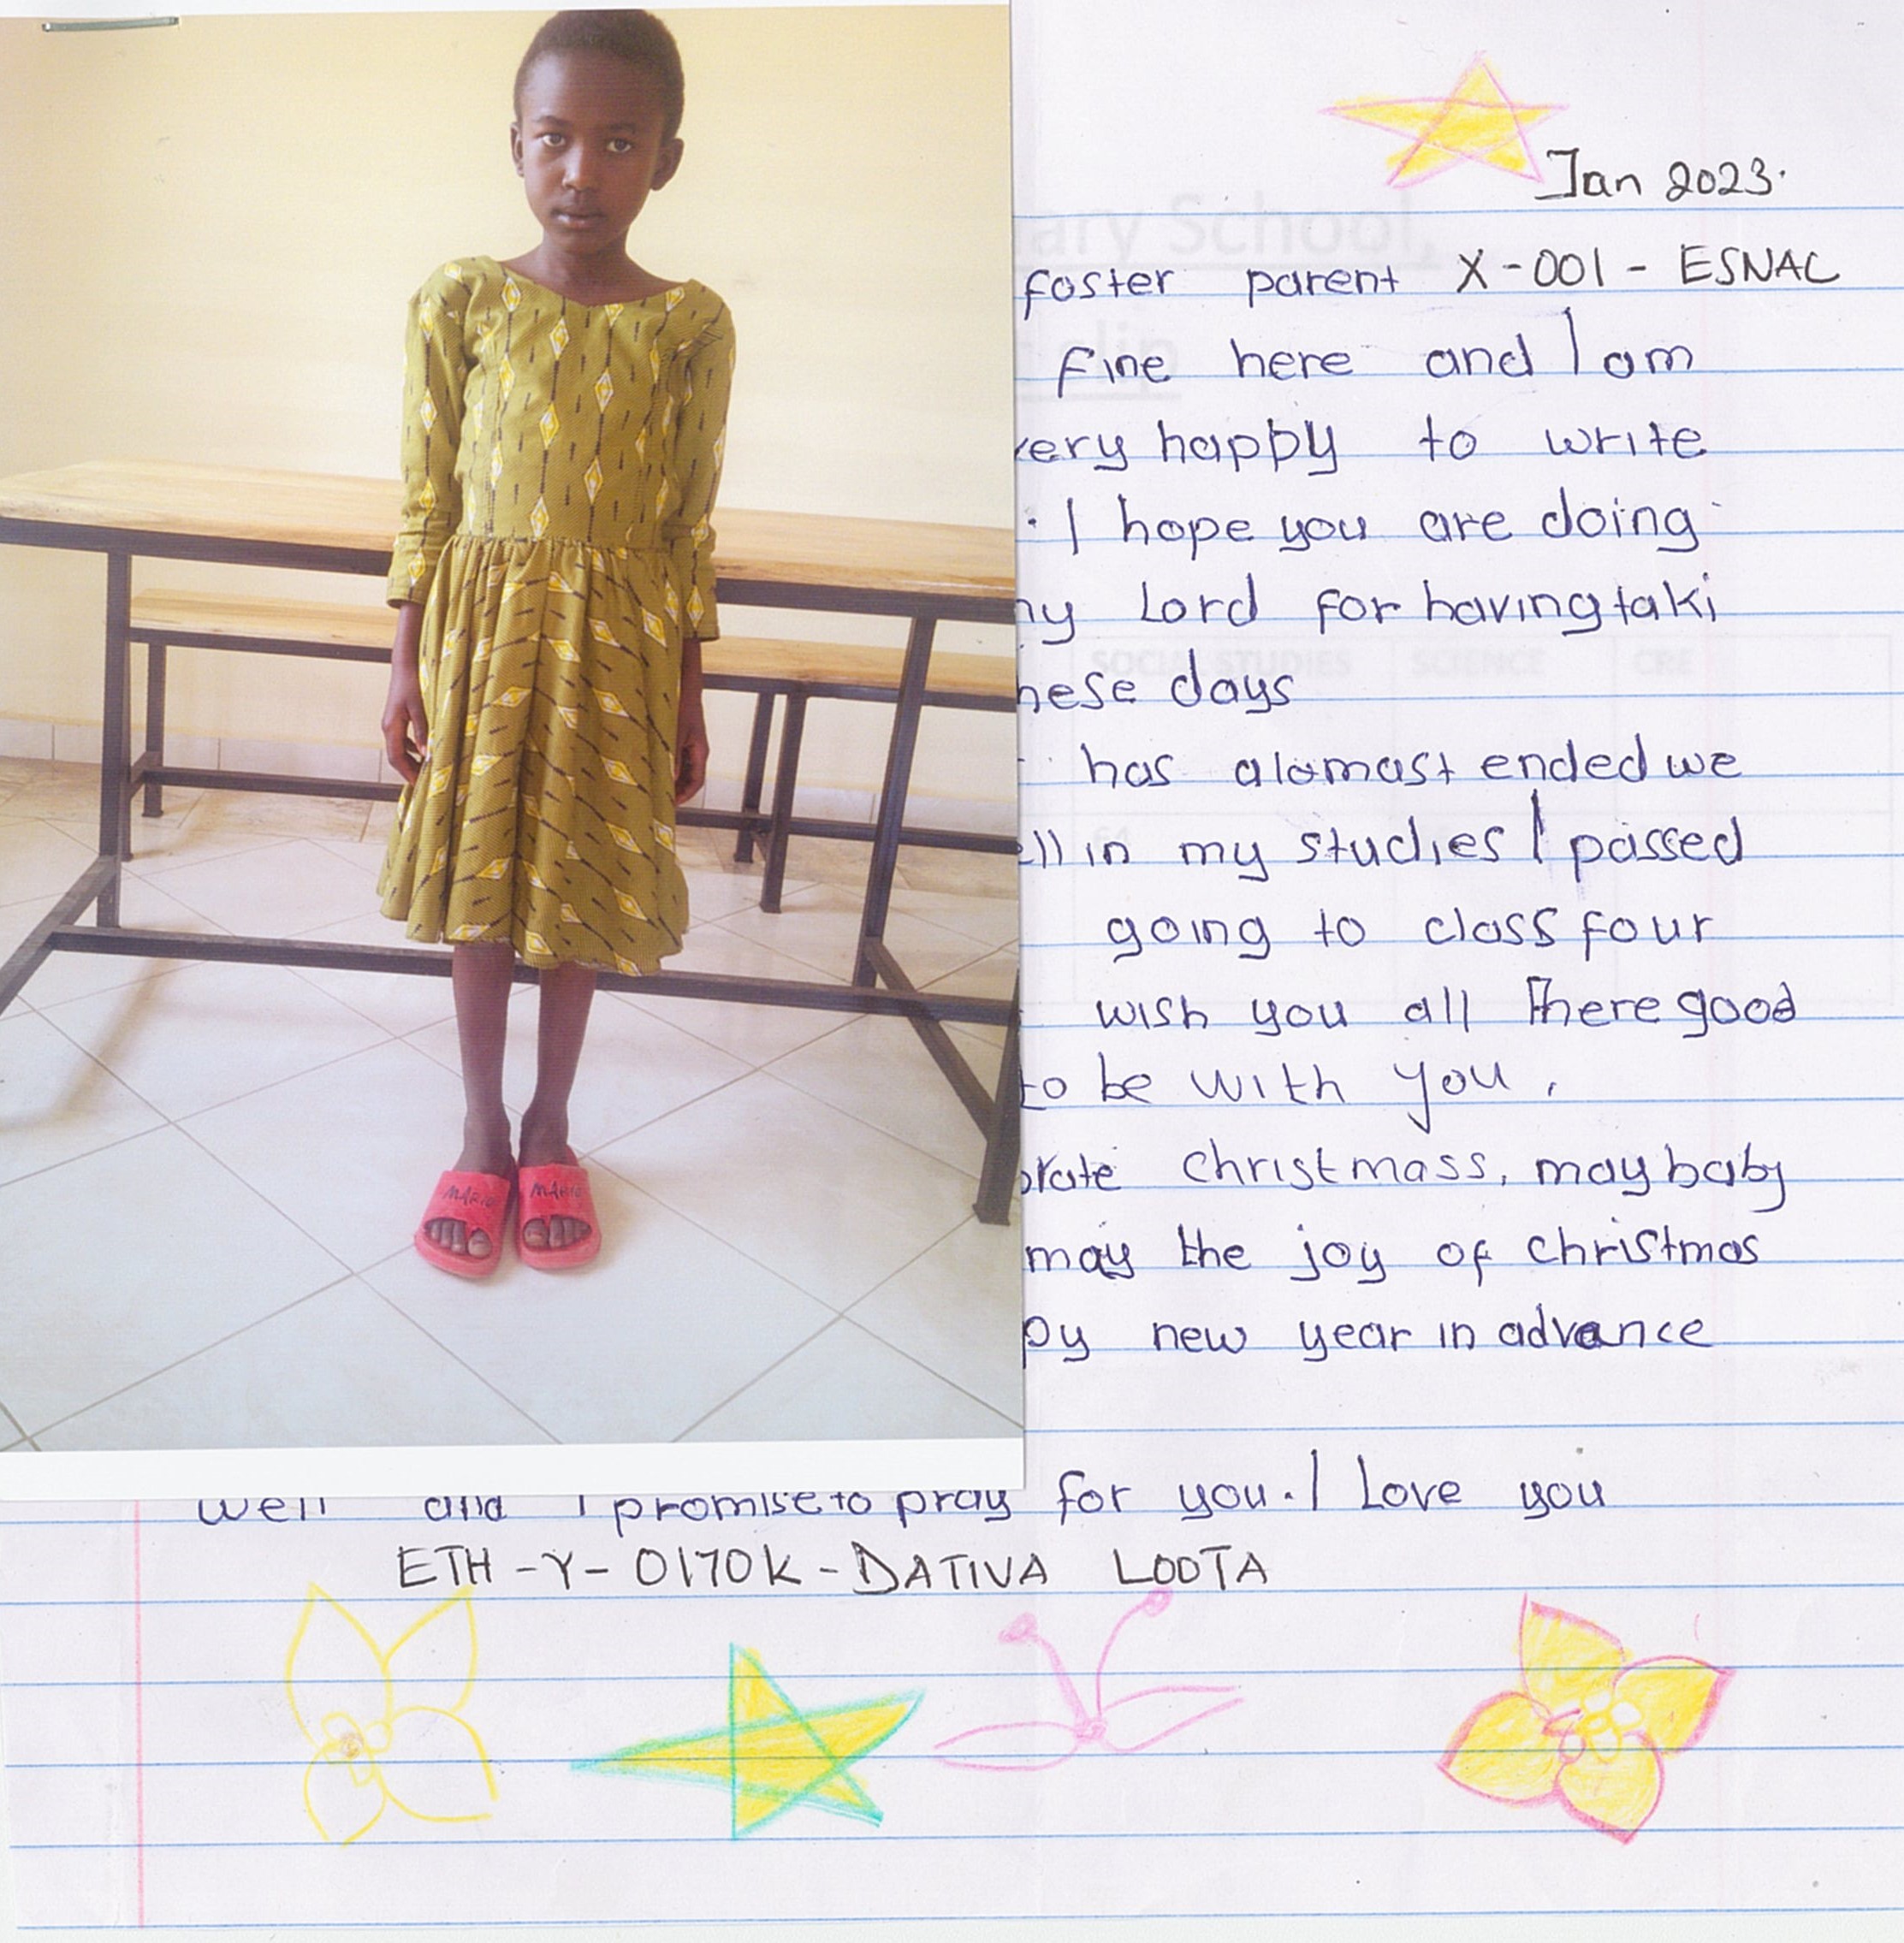 Jan 2023.
foster parent X-001- ESNAC
fine here and I am
very happy to write
. I hope you are doing
my Lord for having taki
hese days
has alomast ended we
ll in my studies I passed
going to class four
wish you all There good
to be with you.
rate christmass, may baby
may the joy of christmas
py new year in advance
well and I promise to pray for you. I Love you
ETH-Y-0170K-DATIVA LOOTA
MARIO MARIO
ary School,
slip
SOCIAL STUDIES SCIENCE CRE
64